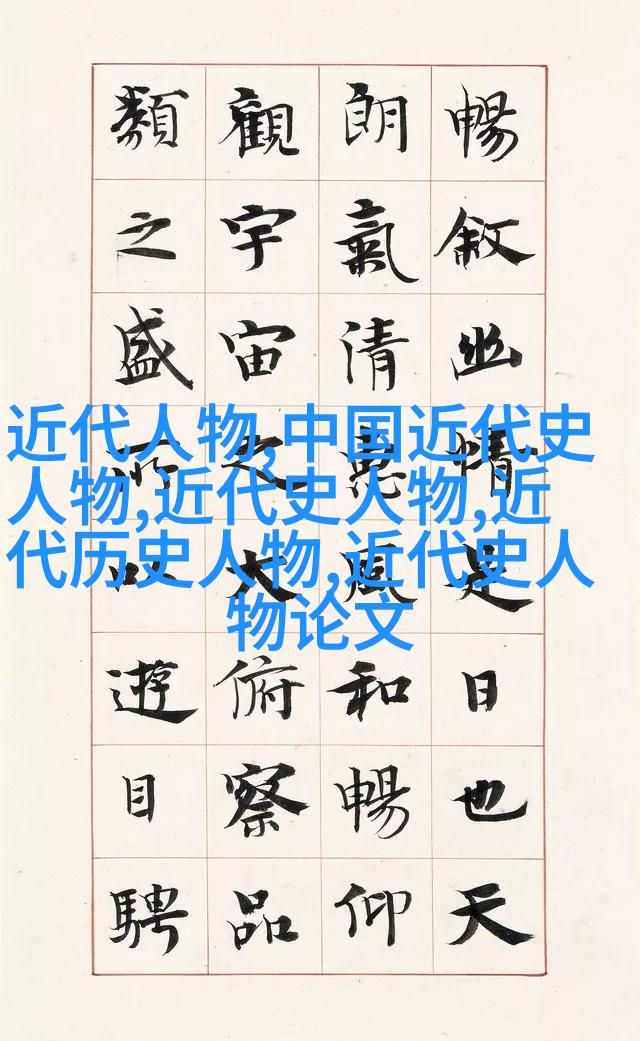 暢敘幽情是日也天
朗氣清惠風和暢仰
觀宇宙之大俯察品
類之盛所以遊目騁
近代人物,中国近代史
人物,近代史人物,近
代历史人物,近代史人
物论文